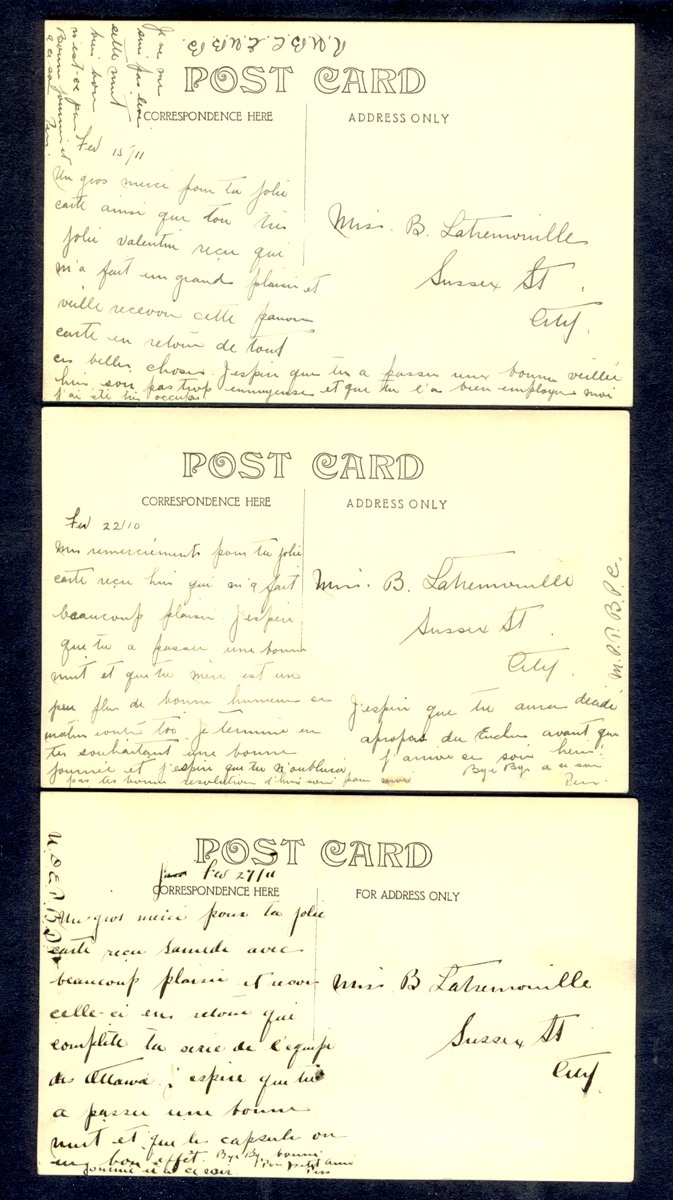 Je ne me
suis pas levé
cette nuit
bien bon
n'est-ce pas
Bonne journée et
à ce soir
N.U.B.C.E.U.B.B.
POST CARD
CORRESPONDENCE HERE
ADDRESS ONLY
Fev 15/11
Un gros merci pour ta jolie
carte ainsi que ton très
jolie valentin reçu qui
m'a fait un grand plaisir et
veille recevoir cette pauvre
carte en retour de tout
ces belles choses. J'espire que tu a passer une bonne veillée
hier soir pas trop ennuyeuse et que tu l'a bien employer moi
j'ai été très occuper
Miss. B. Latremouille
Sussex St.
City.
POST CARD
CORRESPONDENCE HERE
ADDRESS ONLY
Fev 22/10
Mes remerciements pour ta jolie
carte reçu hier qui m'a fait
beaucoup plaisir J'espire
que tu a passer une bonne
nuit et que tu
peu plus de bonne humeur ce
matin Je termine en
te souhaitant une bonne
journée et j'espire que tu n'oubliera
pas tes bonne resolution d'hier soir pour moi
Miss. B. Latremouille
Sussex St.
City.
M.P.T.B.P.C.
J'espire que tu aura décidé
apropos du Euchre avant que
j'arrive ce soir hein!
Bye Bye a ce soir
POST CARD
Fev 27/11
CORRESPONDENCE HERE
FOR ADDRESS ONLY
Un gros merci pour ta jolie
carte reçu Samedi avec
beaucoup plaisir et recoi
celle-ci en retour qui
complète ta serie de l'equipe
des Ottawa j'espire que tu
a passer une bonne
nuit et que les capsule on
eu bon effêt. Bye Bye bonne
journée et a ce soir Ton petit ami
Miss B Latremouille
Sussex St
City.